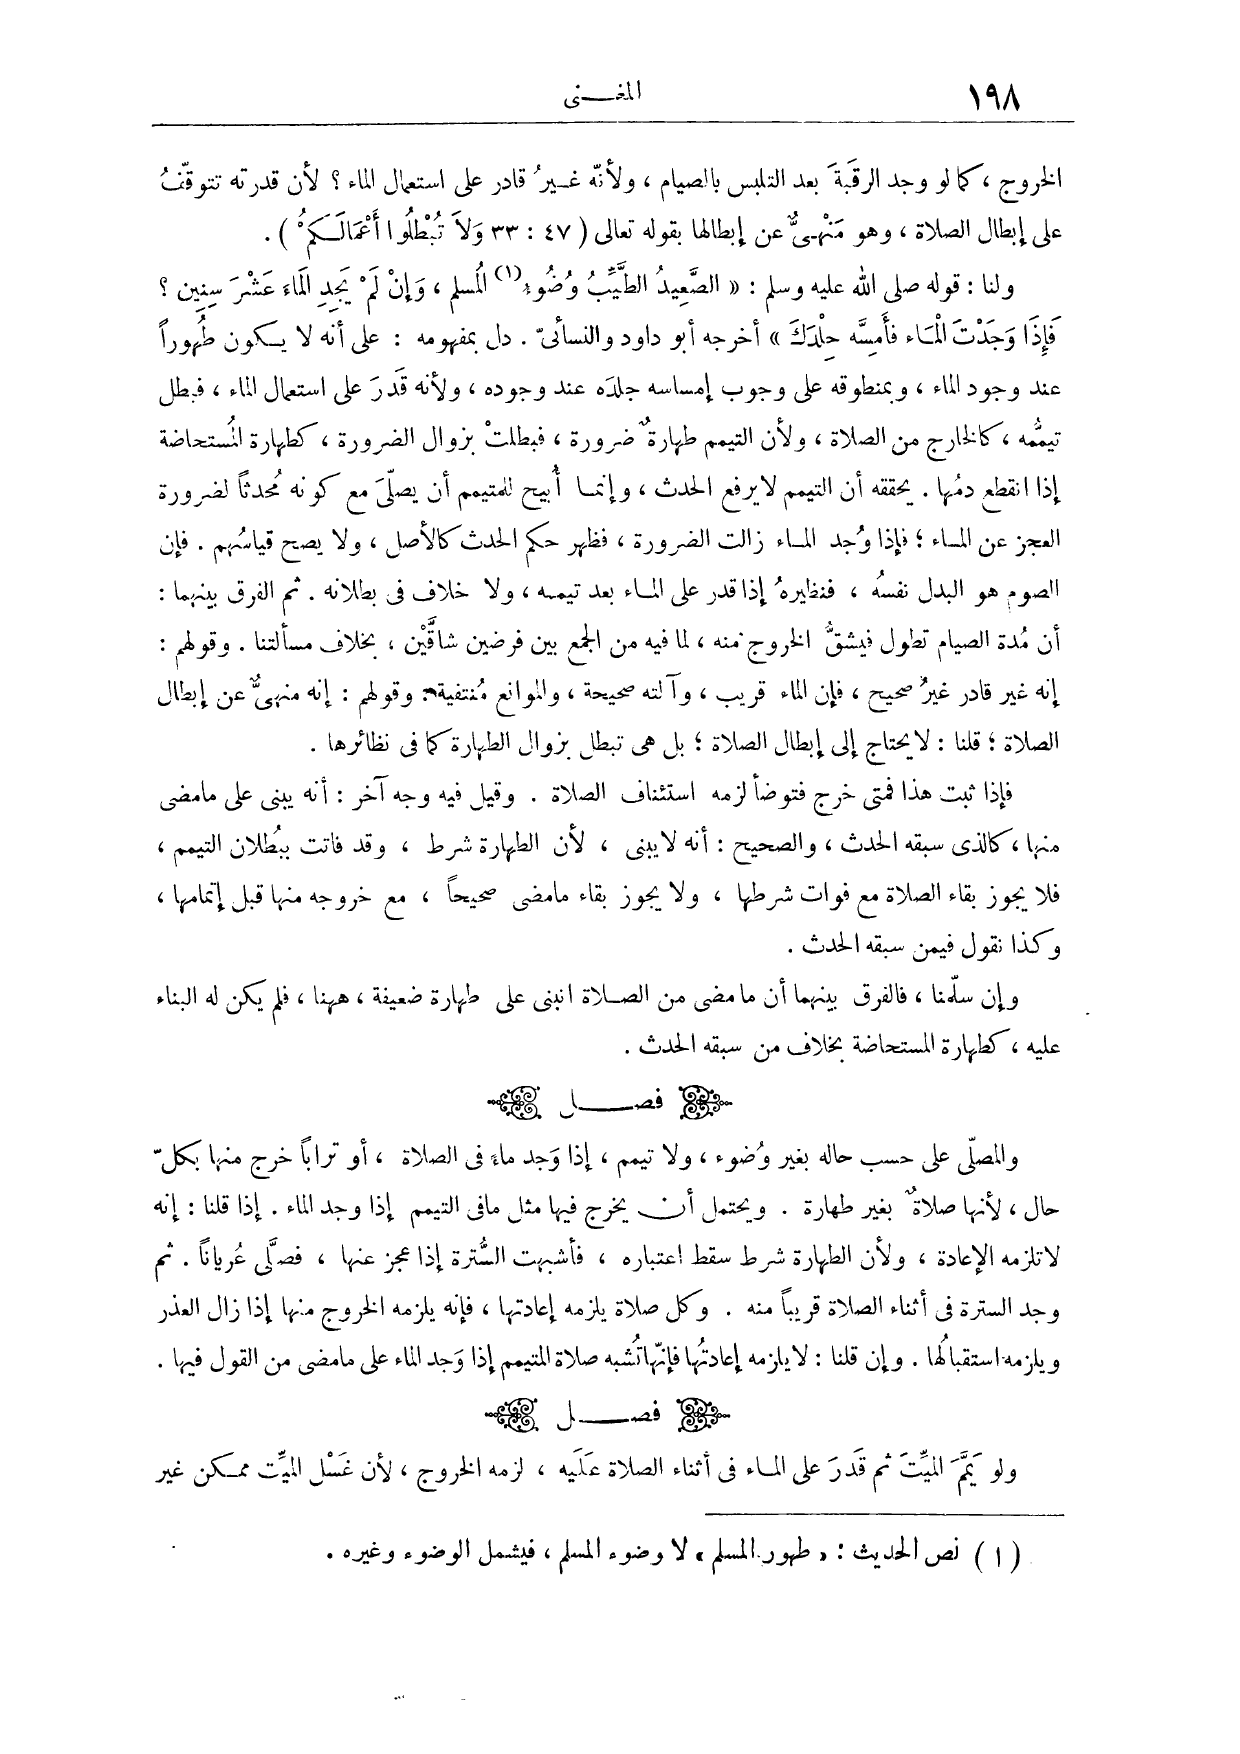 ١٩٨
المغـــنى
الخروج ، كما لو وجد الرقَبةَ بعد التلبس بالصيام ، ولأنّه غيرُ قادر على استعمال الماء ؟ لأن قدرته تتوقّفُ
على إبطال الصلاة ، وهو مَنْهىٌّ عن إبطالها بقوله تعالى ( ٤٧ : ٣٣ وَلاَ تُبْطلُوا أَعْمَالَكمُ ْ ) .
ولنا : قوله صلى الله عليه وسلم : « الصَّعِيدُ الطَّيِّبُ وُضُوءُ(١) الُمسلم ، وَإنْ لَمْ يَجِدِ الَماءَ عَشْرَ سِنِين ؟
فَإِذَا وَجَدْتَ الْمَاء فأَمِسَّه جِلْدَكَ » أخرجه أبو داود والنسأنىّ . دل بمفهومه : على أنه لا يكون طَهُوراً
عند وجود الماء ، وبمنطوقه على وجوب إمساسه جلدَه عند وجوده ، ولأنه قَدرَ على استعمال الماء ، فبطل
تيممُّه ، كالخارج من الصلاة ، ولأن التيمم طهارةٌ ضرورة ، فبطلتْ بزوال الضرورة ، كطهارة الُمستحاضة
إذا انقطع دمُها . يحققه أن التيمم لا يرفع الحدث ، وإنما أُبيح للمتيمم أن يصلّىَ مع كونه مُحدثاً لضرورة
العجز عن الماء ؛ فإذا وُجد الماء زالت الضرورة ، فظهر حكم الحدث كالأصل ، ولا يصح قياسُهم . فإن
الصوم هو البدل نفسُه ، فنظيرهُ إذا قدر على الماء بعد تيممه ، ولا خلاف فى بطلانه . ثم الفرق بينهما :
أن مُدة الصيام تطول فيشقُّ الخروج منه ، لما فيه من الجمع بين فرضين شاقَّيْن ، بخلاف مسألتنا . وقولهم :
إنه غير قادر غيرُ صحيح ، فإن الماء قريب ، وآلته صحيحة ، والموانع مُنتفية . وقولهم : إنه منهىٌّ عن إبطال
الصلاة ؛ قلنا : لا يحتاج إلى إبطال الصلاة ؛ بل هى تبطل بزوال الطهارة كما فى نظائرها .
فإذا ثبت هذا فمتى خرج فتوضأ لزمه استئناف الصلاة . وقيل فيه وجه آخر : أنه يبنى على مامضى
منها ، كالذى سبقه الحدث ، والصحيح : أنه لا يبنى ، لأن الطهارة شرط ، وقد فاتت ببُطلان التيمم ،
فلا يجوز بقاء الصلاة مع فوات شرطها ، ولا يجوز بقاء مامضى صحيحاً ، مع خروجه منها قبل إتمامها ،
وكذا نقول فيمن سبقه الحدث .
وإن سلّمنا ، فالفرق بينهما أن ما مضى من الصلاة انبنى على طهارة ضعيفة ، ههنا ، فلم يكن له البناء
عليه ، كطهارة المستحاضة بخلاف من سبقه الحدث .
فصـــــل
والمصلّى على حسب حاله بغير وُضوء ، ولا تيمم ، إذا وَجد ماء فى الصلاة ، أو تراباً خرج منها بكلّ
حال ، لأنها صلاةٌ بغير طهارة . ويحتمل أن يخرج فيها مثل مافى التيمم إذا وجد الماء . إذا قلنا : إنه
لا تلزمه الإعادة ، ولأن الطهارة شرط سقط اعتباره ، فأشبهت السُّترة إذا عجز عنها ، فصلَّى عُرياناً . ثم
وجد السترة فى أثناء الصلاة قريباً منه . وكل صلاة يلزمه إعادتها ، فإنه يلزمه الخروج منها إذا زال العذر
ويلزمه استقبالُها . وإن قلنا : لا يلزمه إعادتُها فإنّها تُشبه صلاة المتيمم إذا وَجد الماء على مامضى من القول فيها .
فصـــــل
ولو يَمَّمَ الميِّتَ ثم قَدرَ على الماء فى أثناء الصلاة عَلَيه ، لزمه الخروج ، لأن غَسْل الميِّت ممكن غير
( ١ ) نص الحديث : « طهور المسلم » لا وضوء المسلم ، فيشمل الوضوء وغيره .